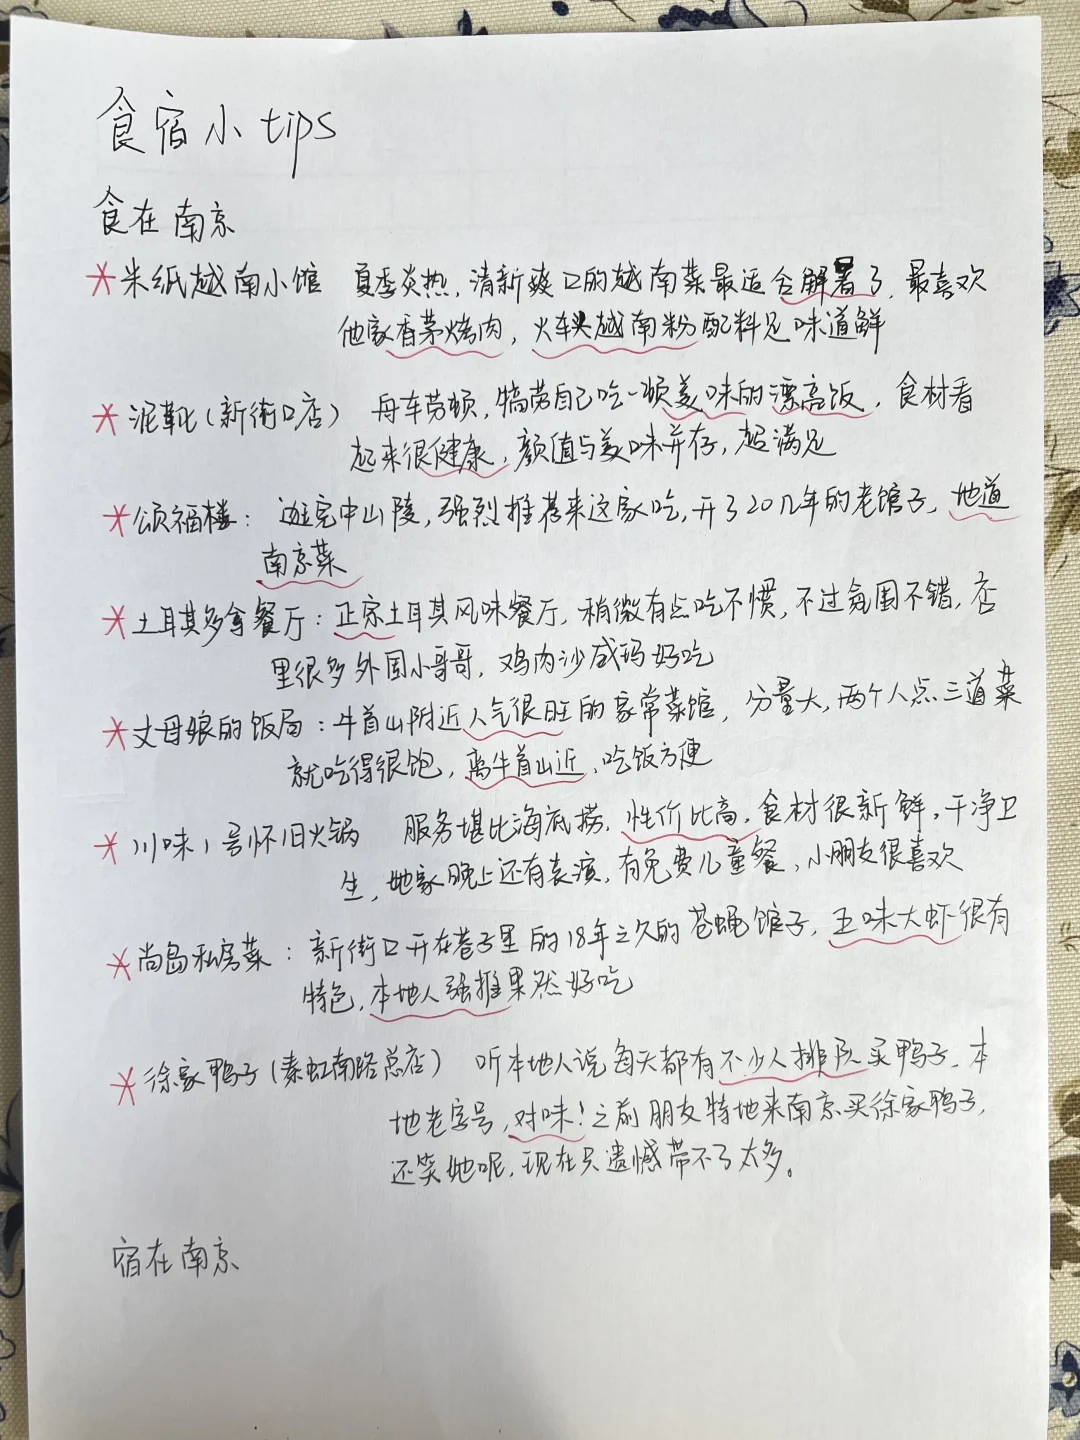 食宿小tips
食在南京
*米纸越南小馆 夏季炎热,清新爽口的越南菜最适合解暑了,最喜欢
他家香茅烤肉,火车头越南粉配料足味道鲜
*泥靴(新街口店) 舟车劳顿,犒劳自己吃一顿美味的漂高饭,食材看
起来很健康,颜值与美味并存,超满足
*颂福楼: 逛完中山陵,强烈推荐来这家吃,开了20几年的老馆子,地道
南京菜
*土耳其多拿餐厅:正宗土耳其风味餐厅,稍微有点吃不惯,不过氛围不错,店
里很多外国小哥哥,鸡肉沙威玛好吃
*丈母娘的饭局:牛首山附近人气很旺的家常菜馆,分量大,两个人点三道菜
就吃得很饱,离牛首山近,吃饭方便
*川味1号怀旧火锅 服务堪比海底捞,性价比高,食材很新鲜,干净卫
生,她家晚上还有表演,有免费儿童餐,小朋友很喜欢
*尚岛私房菜: 新街口开在巷子里的18年之久的苍蝇馆子,五味大虾很有
特色,本地人强推果然好吃
*徐家鸭子(秦虹南路总店) 听本地人说每天都有不少人排队买鸭子,本
地老字号,对味!之前朋友特地来南京买徐家鸭子,
还笑她呢,现在只遗憾带不了太多。
宿在南京